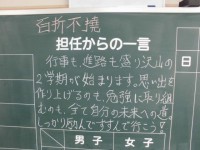 百折不撓
担任からの一言
行事も、進路も盛り沢山の
2学期が始まります。思い出を
作り上げるのも、勉強に取り組
むのも、全て自分の未来への道。
しっかり励んですすんで行こう!
日
男子 女子